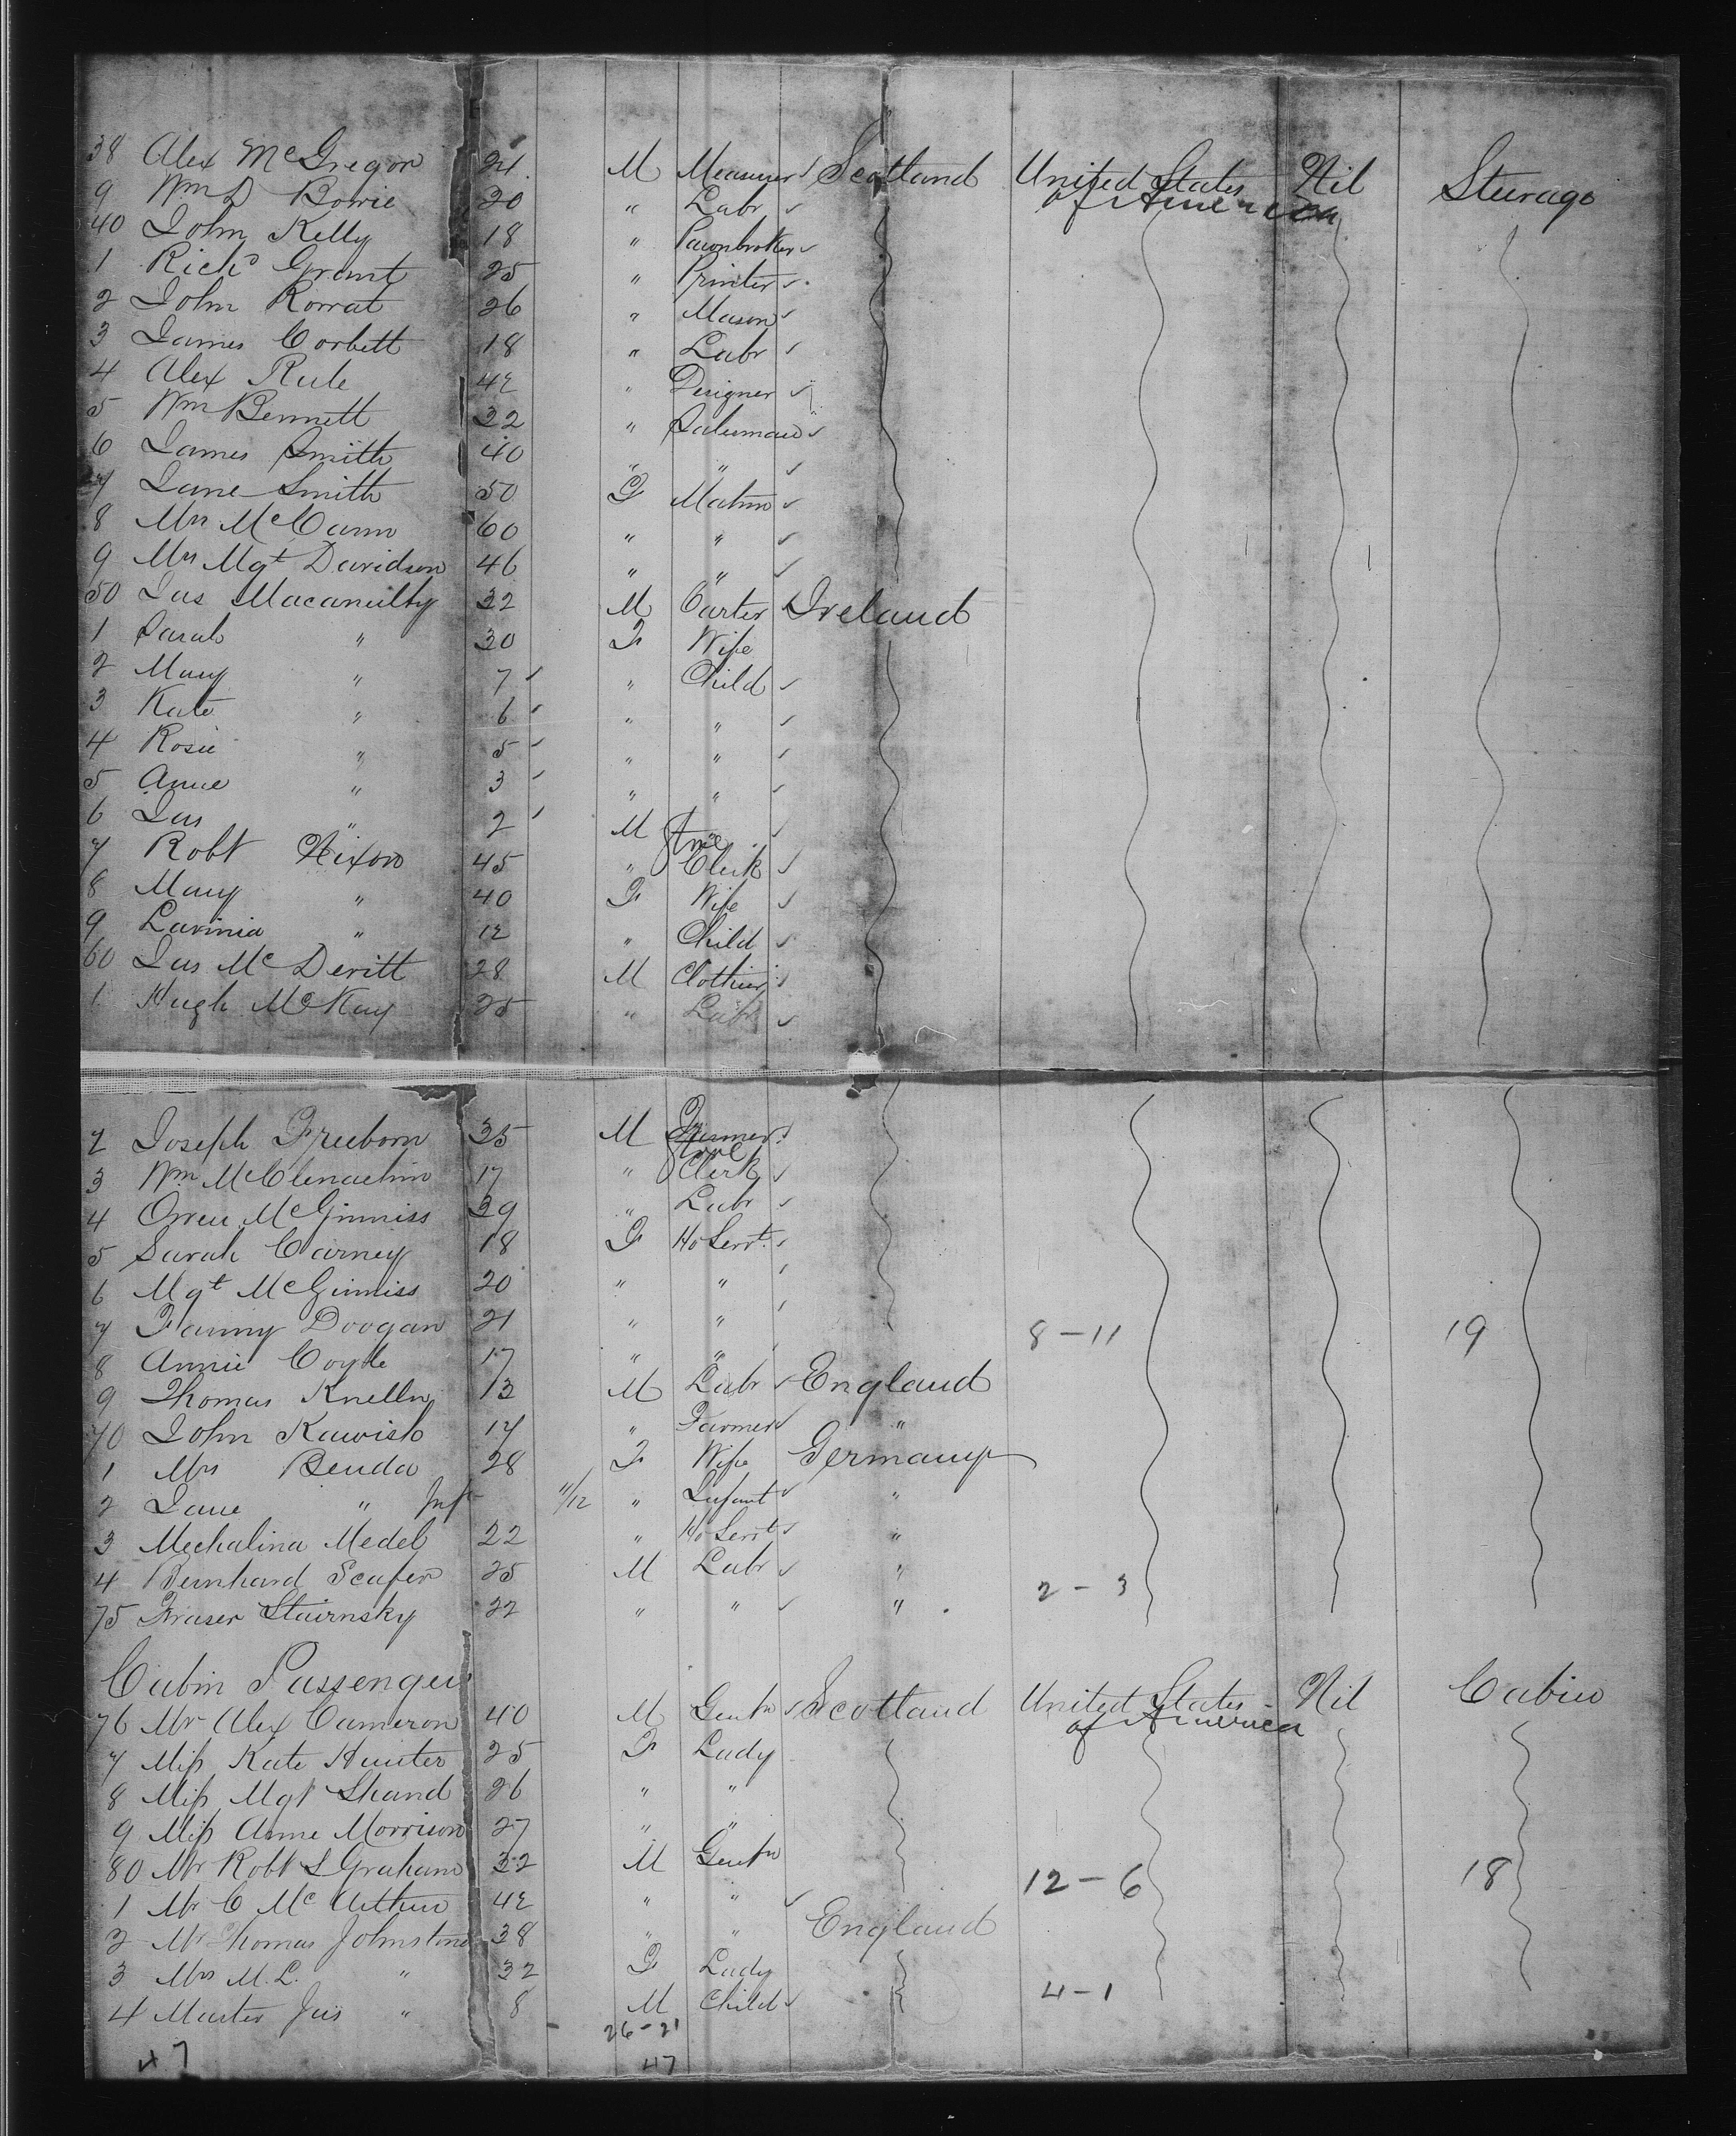 38 Alex McGregor 24 M Measurer Scotland United States of America Nil Steerage
9 Wm D Bowie 20 " Labr
40 John Kelly 18 " Pawnbroker
1 Richd Grant 25 " Printer
2 John Rowat 26 " Mason
3 James Corbett 18 " Labr
4 Alex Rule 42 " Designer
5 Wm Bennett 22 " Salesman
6 James Smith 40 " "
7 Jane Smith 50 F Matron
8 Mrs McCann 60 " "
9 Mrs Mgt Davidson 46 " "
50 Jas Macanulty 32 M Carter Ireland
1 Sarah " 30 F Wife
2 Mary " 7 " Child
3 Kate " 6 " "
4 Rosie " 5 " "
5 Anne " 3 " "
6 Jas " 2 M "
7 Robt Nixon 45 " Clerk
8 Mary " 40 F Wife
9 Lavinia " 12 " Child
60 Jas McDevitt 28 M Clothier
1 Hugh McKay 25 " Labr
2 Joseph Freeborn 35 M Farmer
3 Wm McClenachin 17 " Store Clerk
4 Owen McGinniss 39 " Labr
5 Sarah Carney 18 F Ho Servt.
6 Mgt McGinniss 20 " "
7 Fanny Doogan 21 " " 8-11 19
8 Annie Coyle 17 " "
9 Thomas 13 M Labr England
70 John Kawish 17 " Farmer "
1 Mrs Benda 28 F Wife Germany
2 Jane " Inf 11/12 " Infant "
3 Mechalina Medel 22 " Ho Servt "
4 Bernhard Scafer 25 M Labr " 2-3
75 Fraser Stairnsky 22 " " "
Cabin Passengers
76 Mr Alex Cameron 40 M Gentn Scotland United States of America Nil Cabin
7 Miss Kate Hunter 25 F Lady
8 Miss Mgt Shand 26 " "
9 Miss Anne Morrison 27 " "
80 Mr Robt S Graham 32 M Gentn 12-6 18
1 Mr C McArthur 42 " "
2 Mr Thomas Johnstone 38 " " England
3 Mrs M. L. " 32 F Lady 4-1
4 Master Jas " 8 M Child
26-21
47 47